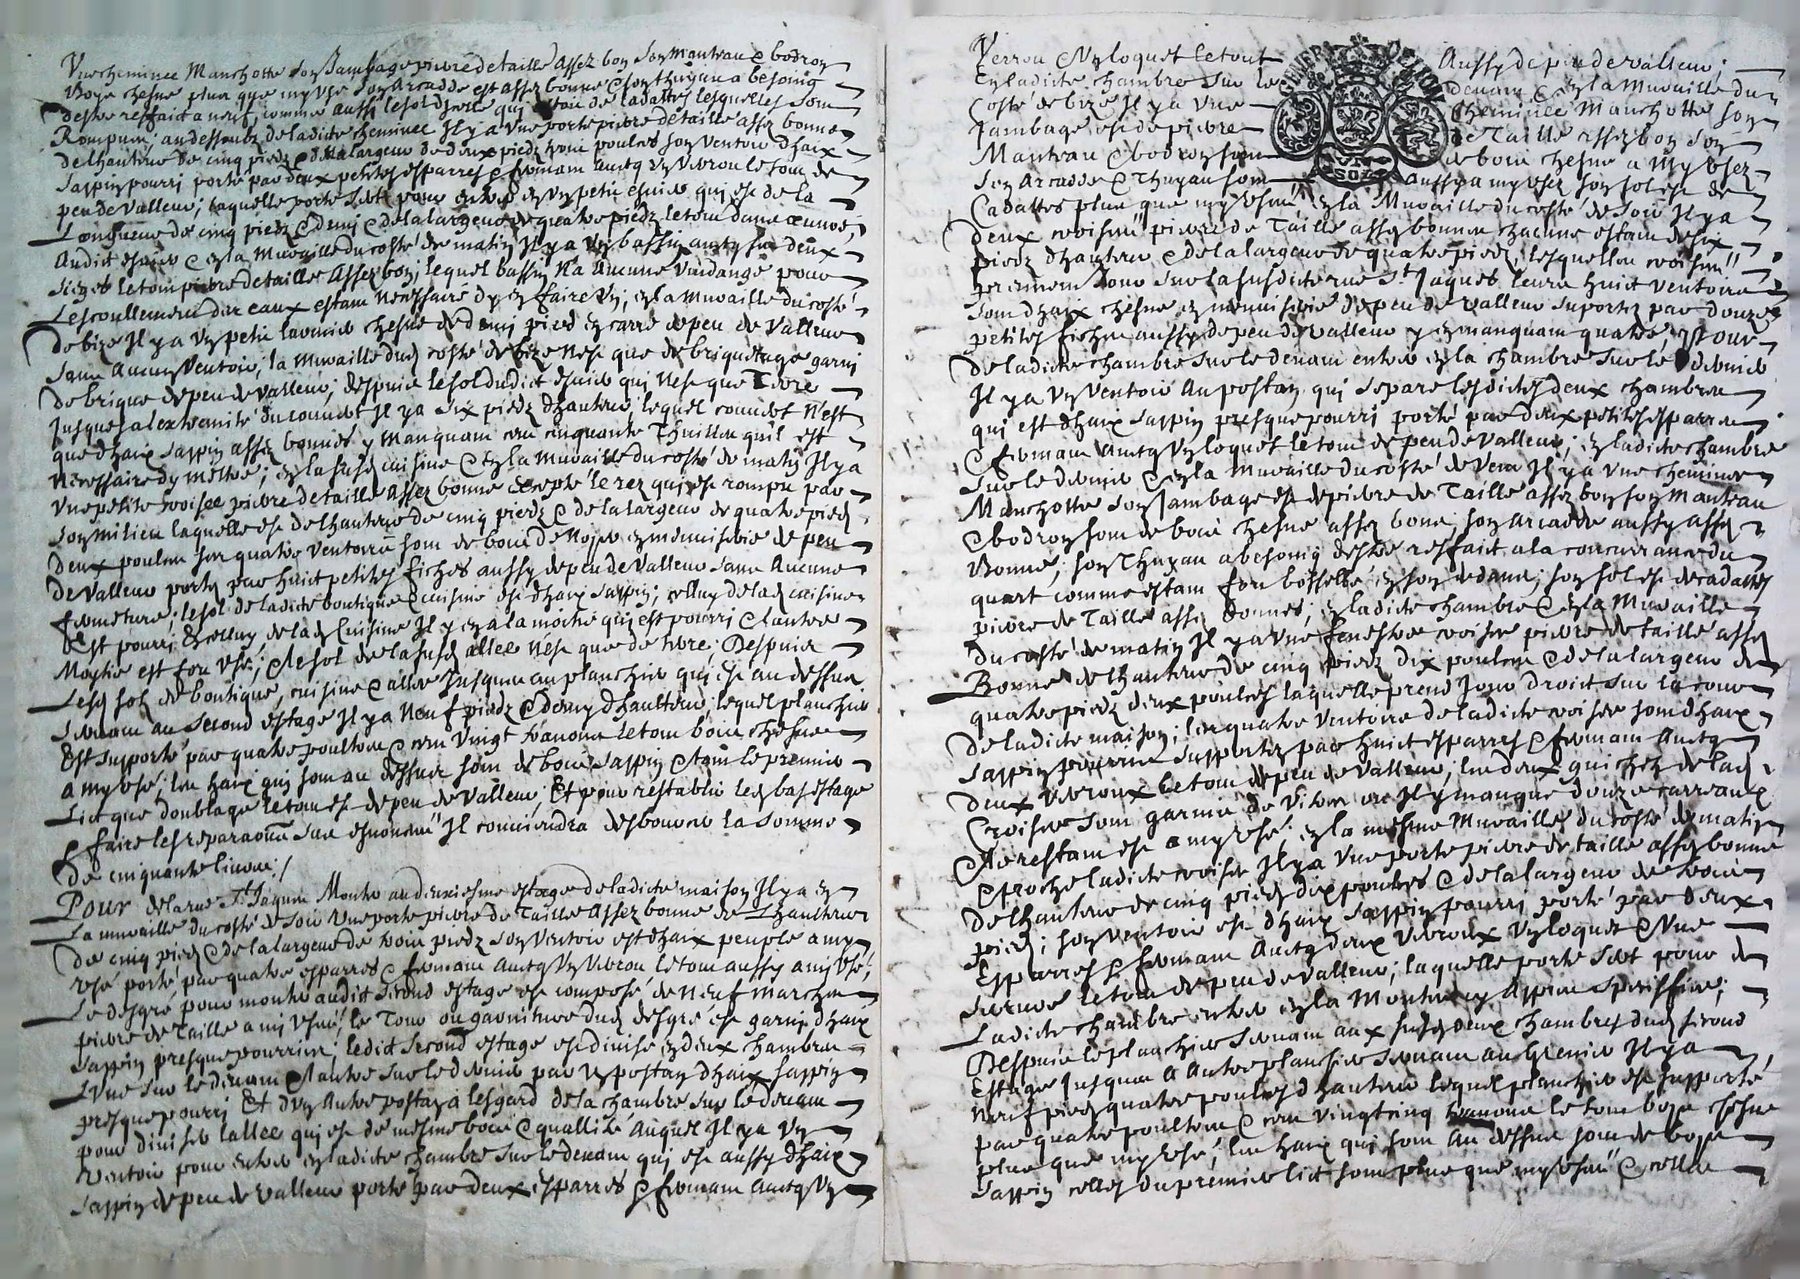 Une cheminee Manchotte son Jambage pierre de taille assez bon son Manteau & bodron
Bois chesne plus que my usé son Arcadde est assez bonne & son thuyau a besoing
destre reffaict a neuf comme aussi le sol dicelle qui estoit de cadattes lesquelles sont
Rompues; au dessoubz de ladicte cheminee Il y a une porte pierre de taille assez bonne
de lhauteur de cinq piedz & de la largeur de deux piedz huict poulces son ventoir dhaix
sappin pourri porté par deux petites esparres & fermant avecq un verrou le tout de
peu de valleur; laquelle porte sert pour entrer en un petit esuier qui est de la
Longueur de cinq piedz & demi & de la largeur de quatre piedz le tout dans œuvre;
Audict esuier & en la Muraille du costé de matin Il y a un bassin avecq ses deux
sieges le tout pierre de taille Assez bon, lequel bassin n'a Aucune vuidange pour
Lescoullement des eaux estant necessaire dy en faire un; en la Muraille du costé
de bize Il y a un petit larmier chesne de demi pied en carré de peu de Valleur
sans Aucun Ventoir; la Muraille dud costé de bize n'est que de briquettage garni
de brique de peu de valleur; despuis le sol dudict esuier qui n'est que Terre
jusques a lextremité du couvert Il y a six piedz dhauteur lequel couvert n'est
que dhaix sappin assez bonnes y Manquant cent cinquante Thuilles qu'il est
necessaire dy mettre; en la susd cuisine & en la Muraille du costé de matin Il y a
une petite croisee pierre de taille assez bonne excepté le rez qui est rompu par
son milieu laquelle est de lhauteur de cinq piedz & de la largeur de quatre piedz
deux poulces ses quatre ventoirs sont de bois de noyer en menuiserie de peu
de valleur portez par huict petites fiches aussy de peu de valleur sans Aucune
fermeture; le sol de ladicte boutique & cuisine est dhaix sappin; celluy de lad cuisine
Est pourri & celluy de lad Cuisine Il y en a la moitié qui est pourri & lautre
Moytie est fort usé; & le sol de la susd allee n'est que de terre; Despuis
Lesd sol de boutique, cuisine & allee Jusques au planchier qui est au dessus
servant au second estage Il y a neuf piedz & demy dhaulteur, lequel planchier
Est supporté par quatre poultres & cent vingt travons le tout bois chesne
a my usé; les haix qui sont au dessus sont de bois sappin & tant le premier
Lict que doublage le tout est de peu de valleur; Et pour restablir led bas estage
& faire les reparaons sus esnoncees Il conviendra desbourcer la somme
de cinquante livres;/
Pour de la rue St Jaques Monter au deuxiesme estage de ladicte maison Il y a en
La muraille du costé de soir une porte pierre de Taille Assez bonne de Lhauteur
de cinq piedz & de la largeur de trois piedz son Ventoir est dhaix peuple a my
usé porté par quatre esparres & fermant Avecq Un Verrou le tout aussy a my usé;
Le desgré pour monter audict second estage est composé de neuf marches
pierre de Taille a mi usees; le Tour ou garniture dud desgré est garni dhaix
sappin presque pourries; ledict second estage est divisé en deux chambres
L'une sur le devant & l'autre sur le derrier par un postan dhaix sappin
presque pourri Et dun Autre postan a lesgard de la chambre sur le devant
pour diviser lallee qui est de mesme bois & quallité Auquel Il y a Un
Ventoir pour entrer en ladicte chambre sur le devant qui est aussy dhaix
sappin de peu de valleur porté par deux esparres & fermant Avecq Un
Verrou & Un loquet le tout Aussy de peu de valleur;
En ladicte chambre sur le devant & en la Muraille du
Costé de bize Il y a une cheminee Manchotte son
Jambage est de pierre de Taille assez bon son
Manteau & bodron sont de bois chesne a My usez
son Arcadde & Thuyau sont aussy a my usez son sol est de
Cadattes plus que my usees; en la Muraille du costé de soir Il y a
deux croisees pierre de Taille assez bonnes chacune estant de six
piedz dhauteur & de la largeur de quatre piedz, lesquelles croisees
prennent Jour sur la susdicte rue St Jaques leurs huict ventoirs
sont dhaix chesne en menuiserie de peu de valleur suportez par douze
petites fiches aussy de peu de valleur y en manquant quatre; Pour
de ladicte chambre sur le devant entrer en la chambre sur le derrier
Il y a un Ventoir Au postan qui separe lesdictes deux chambres
qui est dhaix sappin presque pourri porté par deux petites esparres
& fermant Avecq Un loquet le tout de peu de valleur; en ladicte chambre
sur le derrier & en la Muraille du costé de Vent Il y a une cheminee
Manchotte son Jambage est de pierre de Taille assez bon son Manteau
& bodron sont de bois chesne assez bons, son Arcadde aussy assez
Bonne; son Thuyau a besoing destre reffaict a la concurrance du
quart comme estant fort bosselle en son dedans; son sol est de cadattes
pierre de Taille assez bonnes; en ladicte chambre & en la Muraille
du costé de matin Il y a une fenestre croisee pierre de taille assez
Bonne de lhauteur de cinq piedz dix poulces & de la largeur de
quatre piedz deux poulces laquelle prend Jour droict sur la cour
de ladicte maison; les quatre Ventoirs de ladicte croisee sont dhaix
sappin pourries supportez par huict esparres & fermant Avecq
deux Verroux le tout de peu de valleur; les deux guichez de lad
Croisee sont garnis de Vitres ou Il y manque douze carreaux
& le restant est a my usé; en la mesme Muraille du costé de matin
& proche ladicte croisee Il y a une porte pierre de taille assez bonne
de lhauteur de cinq piedz dix poulces & de la largeur de trois
piedz; son ventoir est dhaix sappin pourri porté par deux
Esparres & fermant Avecq deux Verroux Un loquet & Une
serrure le tout de peu de valleur; laquelle porte sert pour de
Ladicte chambre entrer en la Montee cy Appres speciffiee;
Despuis le planchier servant aux susd deux chambres dud second
Estage Jusques A Autre planchier servant au Grenier Il y a
neuf piedz quatre poulces dhauteur lequel planchier est supporté
par quatre poultres & cent vingtcinq travons le tout bois chesne
plus que my usé; les haix qui sont Au dessus sont de bois
sappin celles du premier lict sont plus que my usees & celles
GENERALITE DIJON
UN SOL